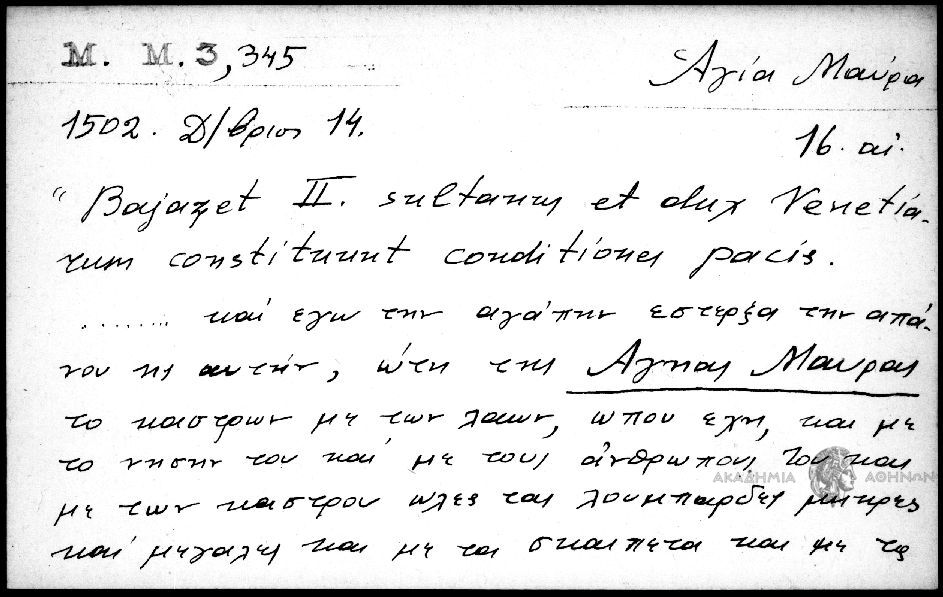 M. M. 3, 345
Ἁγία Μαύρα
1502. Δ/βριος 14.
16. αἰ.
"Bajazet II. sultanus et dux Venetia-
rum constituunt conditiones pacis.
........ καί εγω την αγάπην εστερξα την απά-
νου ης αυτήν, ώτη της Αγηας Μαυρας
το καστρων με των λαων, ωπου εχη, και με
το νησην του και με τους ἀνθρωπους του και
ΑΚΑΔΗΜΙΑ ΑΘΗΝΩΝ
με των καστρου ωλες ται λουμπαρδες μικρες
καί μεγαλες και με τα σκαιπετα και με τς